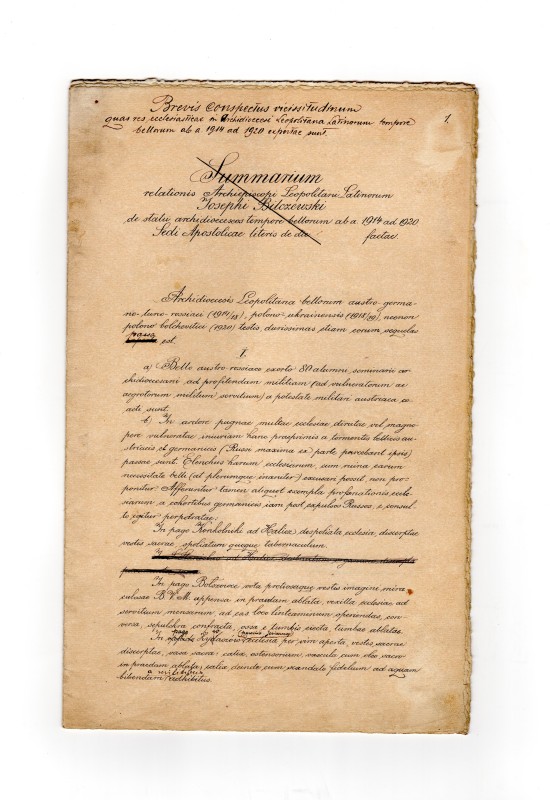 Brevis Conspectus vicissitudinum
quas res ecclesiasticae in Archidioecesi Leopolitana Latinorum tempore
bellorum ab a 1914 ad 1920 expertae sunt.
1.
Summarium
relationis Archiepiscopi Leopolitani Latinorum
Josephi Bilczewski
de statu archidioeceseos tempore bellorum ab a. 1914 ad 1920
Sedi Apostolicae literis de die factae.
Archidioecesis Leopolitana bellorum austro-germa-
no-turco-rossiaci (1914/18), polono-ukrainensis (1918/19), necnon
polono bolchevikici (1920) testis, durissimas etiam eorum sequelas
passa est.
1.
a) Bello austro rossiaco exorto 80 alumni seminarii ar-
chidioecesani ad profitendam militiam (ad vulneratorum ac
aegrotorum militum servitium) a potestate militari austriaca co-
acti sunt.
b) In ardore pugnae multae ecclesiae, dirutae vel magno-
pere vulneratae iniuriam hanc praeprimis a tormentis bellicis au-
striacis et germanicis (Russi maxima ex parte parcebant ipsis)
passae sunt. Elenchus harum ecclesiarum, cum ruina earum
necessitate belli (at plerumque inaniter) excusari possit, non pro-
ponitur. Afferuntur tamen aliquot exempla profanationis eccle-
siarum a cohortibus germanicis iam post expulsos Russos, consul-
to igitur perpetratae:
In pago Konkolniki ad Halicz despoliata ecclesia, discerptae
vestes sacrae, spoliatum quoque tabernaculum.
In pago Bolszowce vota pretiosaque vestis imagini mira
culosae B.V.M. appensa in praedam ablata, vexilla ecclesiae ad
servitium mensarum ad eas loco linteaminum operiendas, con-
versa, sepulchra confracta, ossa e tumbis eiecta, tumbae ablatae.
In pago ecclesia per vim aperta, vestes sacrae
discerptae, vasa sacra: calix, ostensorium, vascula cum oleo sacro
in praedam ablata, calix deinde cum scandalo fidelium ad aquam
bibendam a militibus adhibitus.